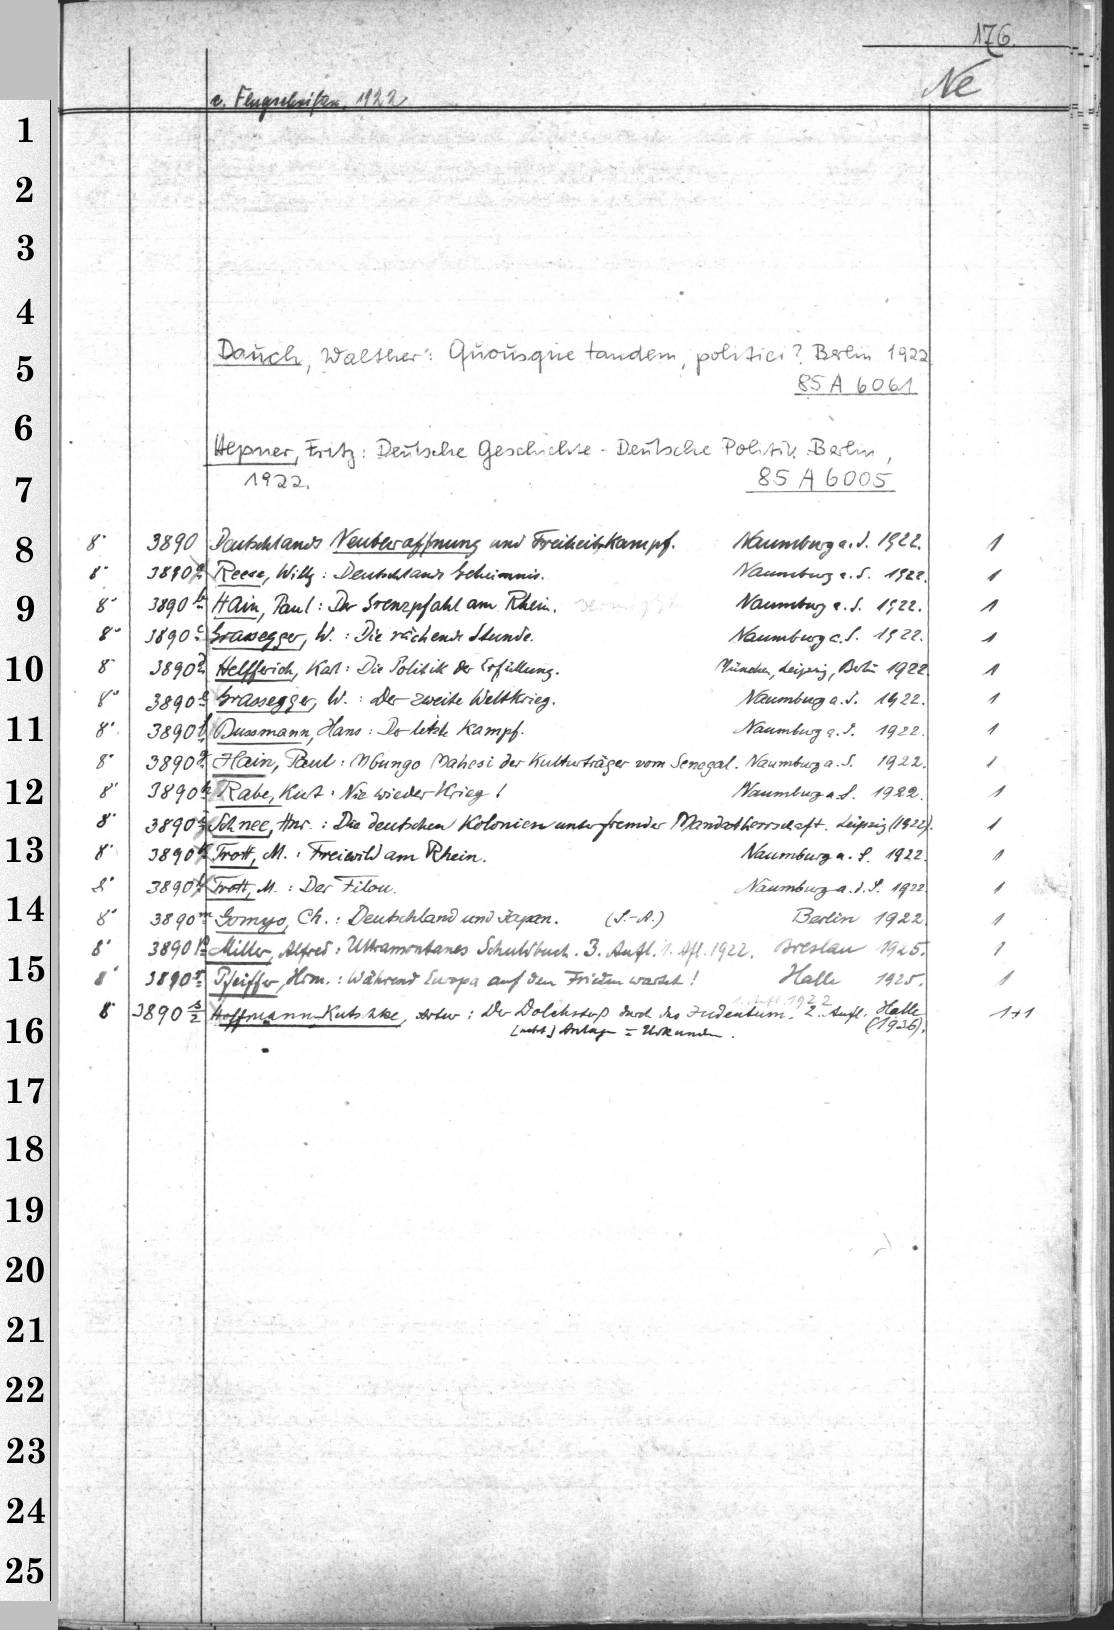 176.
Ne
c. Flugschriften, 1922
1
2
3
4
5
6
7
8
9
10
11
12
13
14
15
16
17
18
19
20
21
22
23
24
25
Dauch, Walther: Quousque tandem, politici? Berlin 1922
85 A 6061
Hepner, Fritz: Deutsche Geschichte - Deutsche Politik. Berlin,
1922. 85 A 6005
8° 3890 Deutschlands Neubewaffnung und Freiheitskampf. Naumburg a. S. 1922. 1
8° 3890a Reese, Willy: Deutschlands Geheimnis. Naumburg a. S. 1922. 1
8° 3890b Hain, Paul: Der Grenzpfahl am Rhein. Naumburg a. S. 1922. 1
8° 3890c Grassegger, W.: Die rächende Stunde. Naumburg a. S. 1922. 1
8° 3890d Helfferich, Karl: Die Politik der Erfüllung. München, Leipzig, Berlin 1922. 1
8° 3890e Grassegger, W.: Der zweite Weltkrieg. Naumburg a. S. 1922. 1
8° 3890f Bussmann, Hans: Der letzte Kampf. Naumburg a. S. 1922. 1
8° 3890g Hain, Paul: Mbungo Mahesi der Kulturträger vom Senegal. Naumburg a. S. 1922. 1
8° 3890h Rabe, Kurt: Nie wieder Krieg! Naumburg a. S. 1922. 1
8° 3890i Schnee, Hnr.: Die deutschen Kolonien unter fremder Mandatherrschaft. Leipzig (1922). 1
8° 3890k Trott, M.: Freiwild am Rhein. Naumburg a. S. 1922. 1
8° 3890l Trott, M.: Der Filou. Naumburg a. d. S. 1922. 1
8° 3890m Gomyo, Ch.: Deutschland und Japan. (S.-A.) Berlin 1922. 1
8° 3890p Miller, Alfred: Ultramontanes Schuldbuch. 3. Aufl. 1. Afl. 1922. Breslau 1925. 1
8° 3890r Pfeiffer, Hrm.: Während Europa auf den Frieden wartet! Halle 1925. 1
1. Aufl. 1922
8° 3890 s/2 Hoffmann-Kutschke, Artur: Der Dolchstoß durch das Judentum. 2. Aufl. Halle 1+1
[nebst] Anlage = Urkunden. (1926).